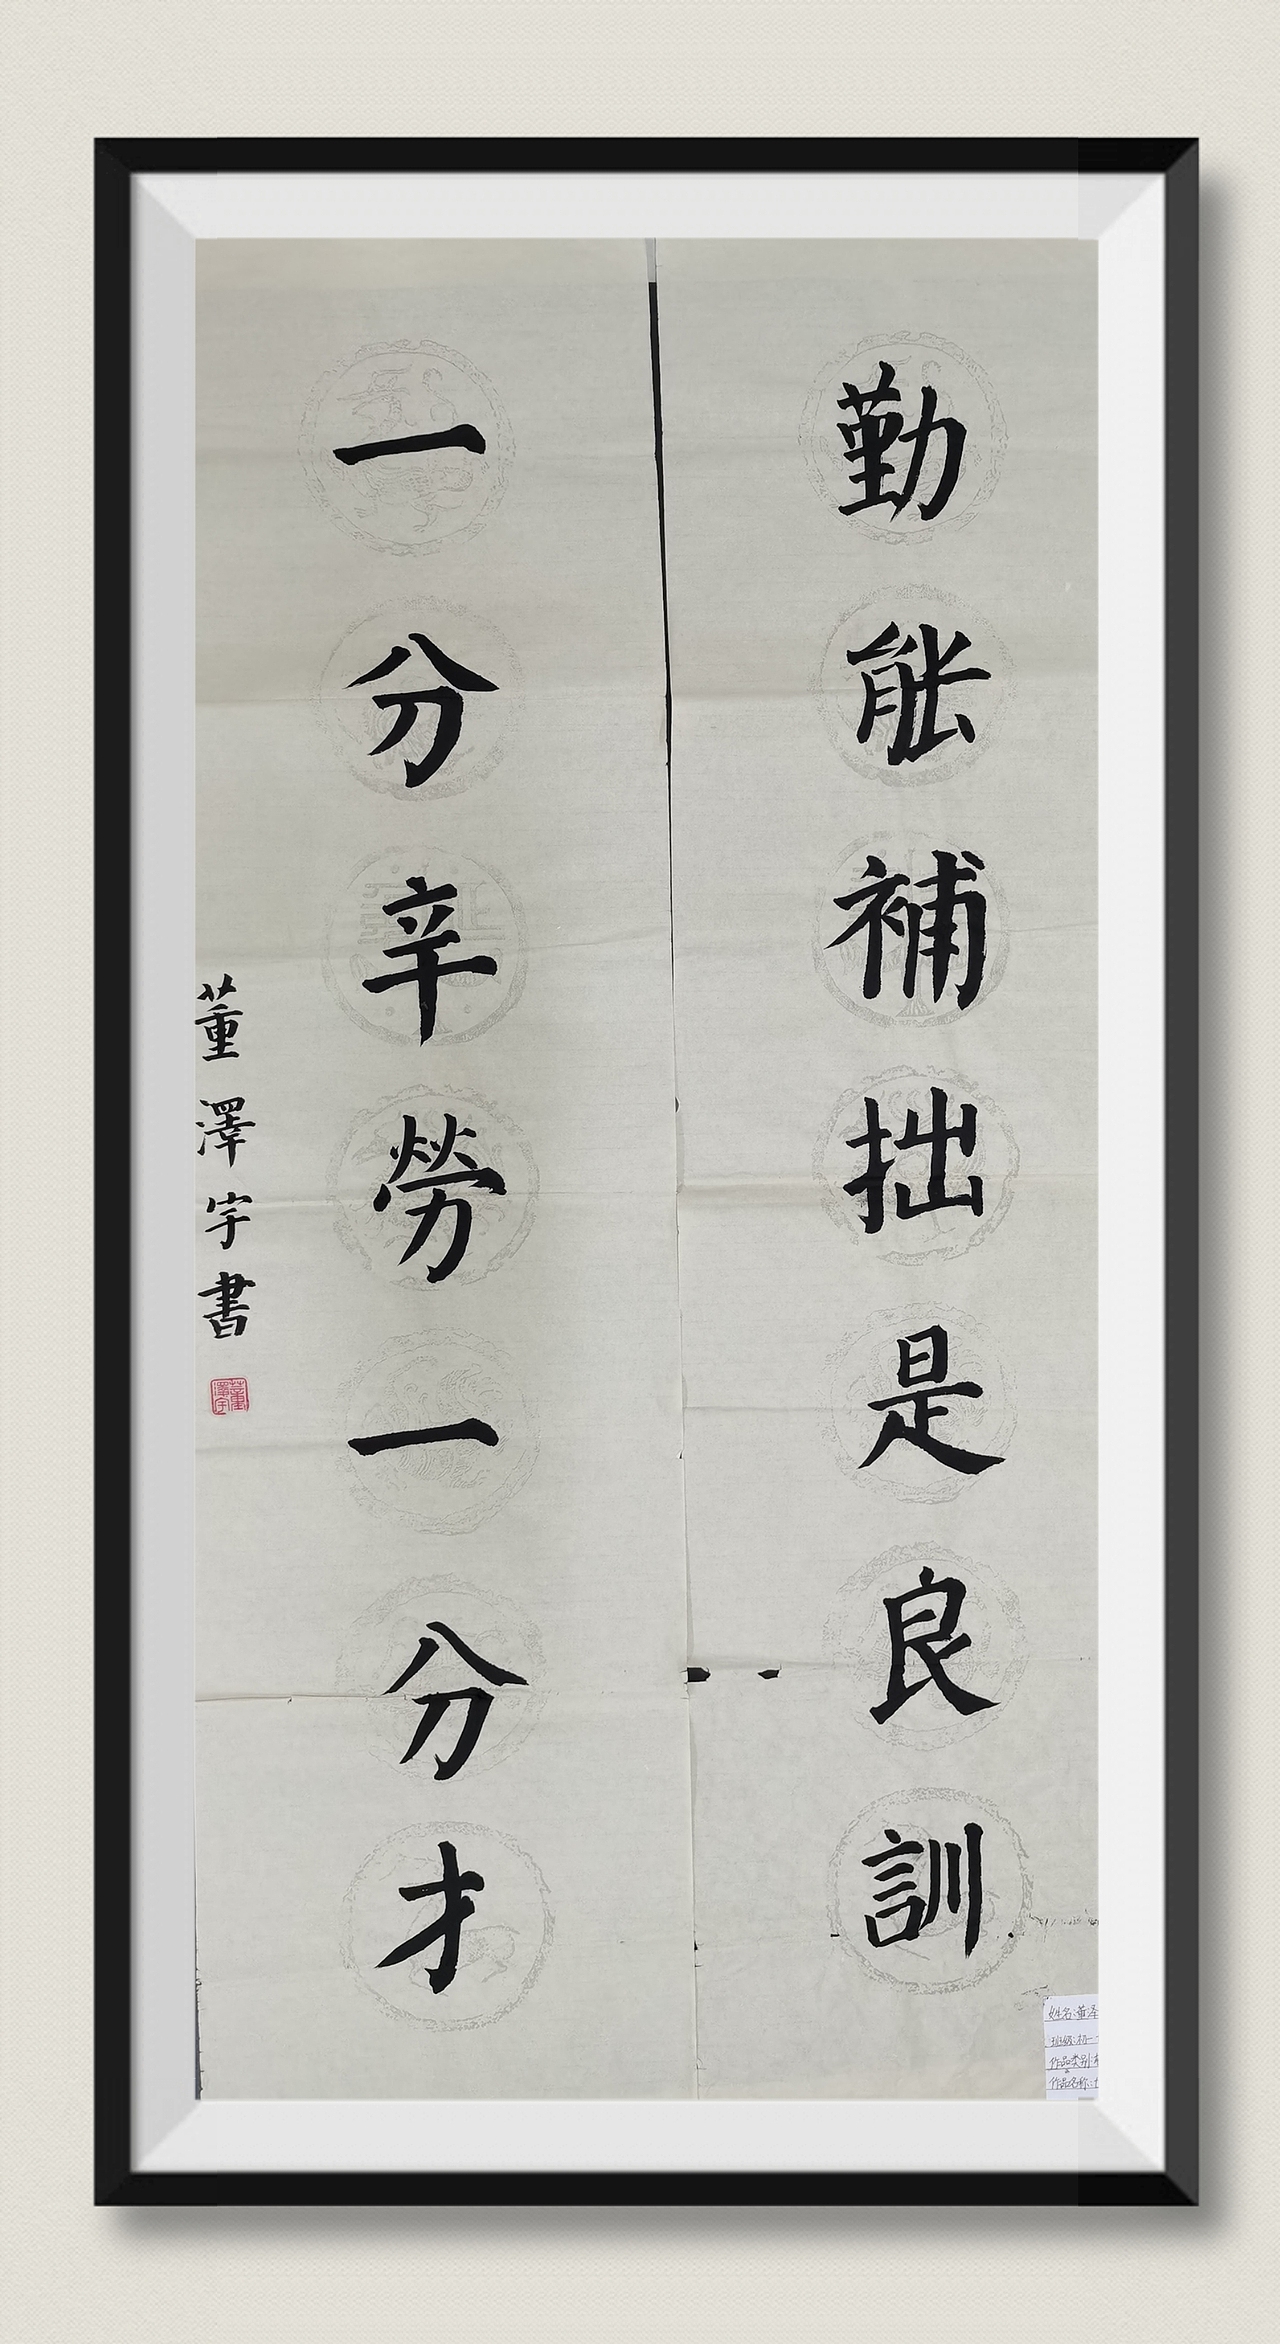 勤能補拙是良訓
一分辛勞一分才
董澤宇書
董澤宇
姓名:董泽
班级:初一
作品类别:
作品名称: